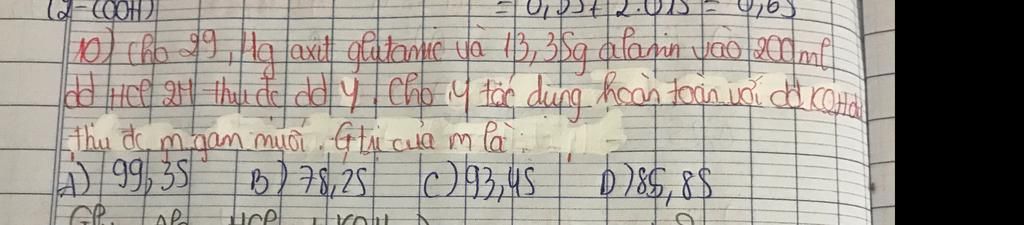 (2-COOH) = 0,35+2.0,15 = 0,65
10) Cho 29,4g axit glutamic và 13,35g alanin vào 200ml
dd HCl 2M thu đc dd Y. Cho Y tác dụng hoàn toàn với dd KOHdư
thu đc m gam muối. Gtrị của m là:
A) 99,35 B) 78,25 C) 93,45 D) 85,85